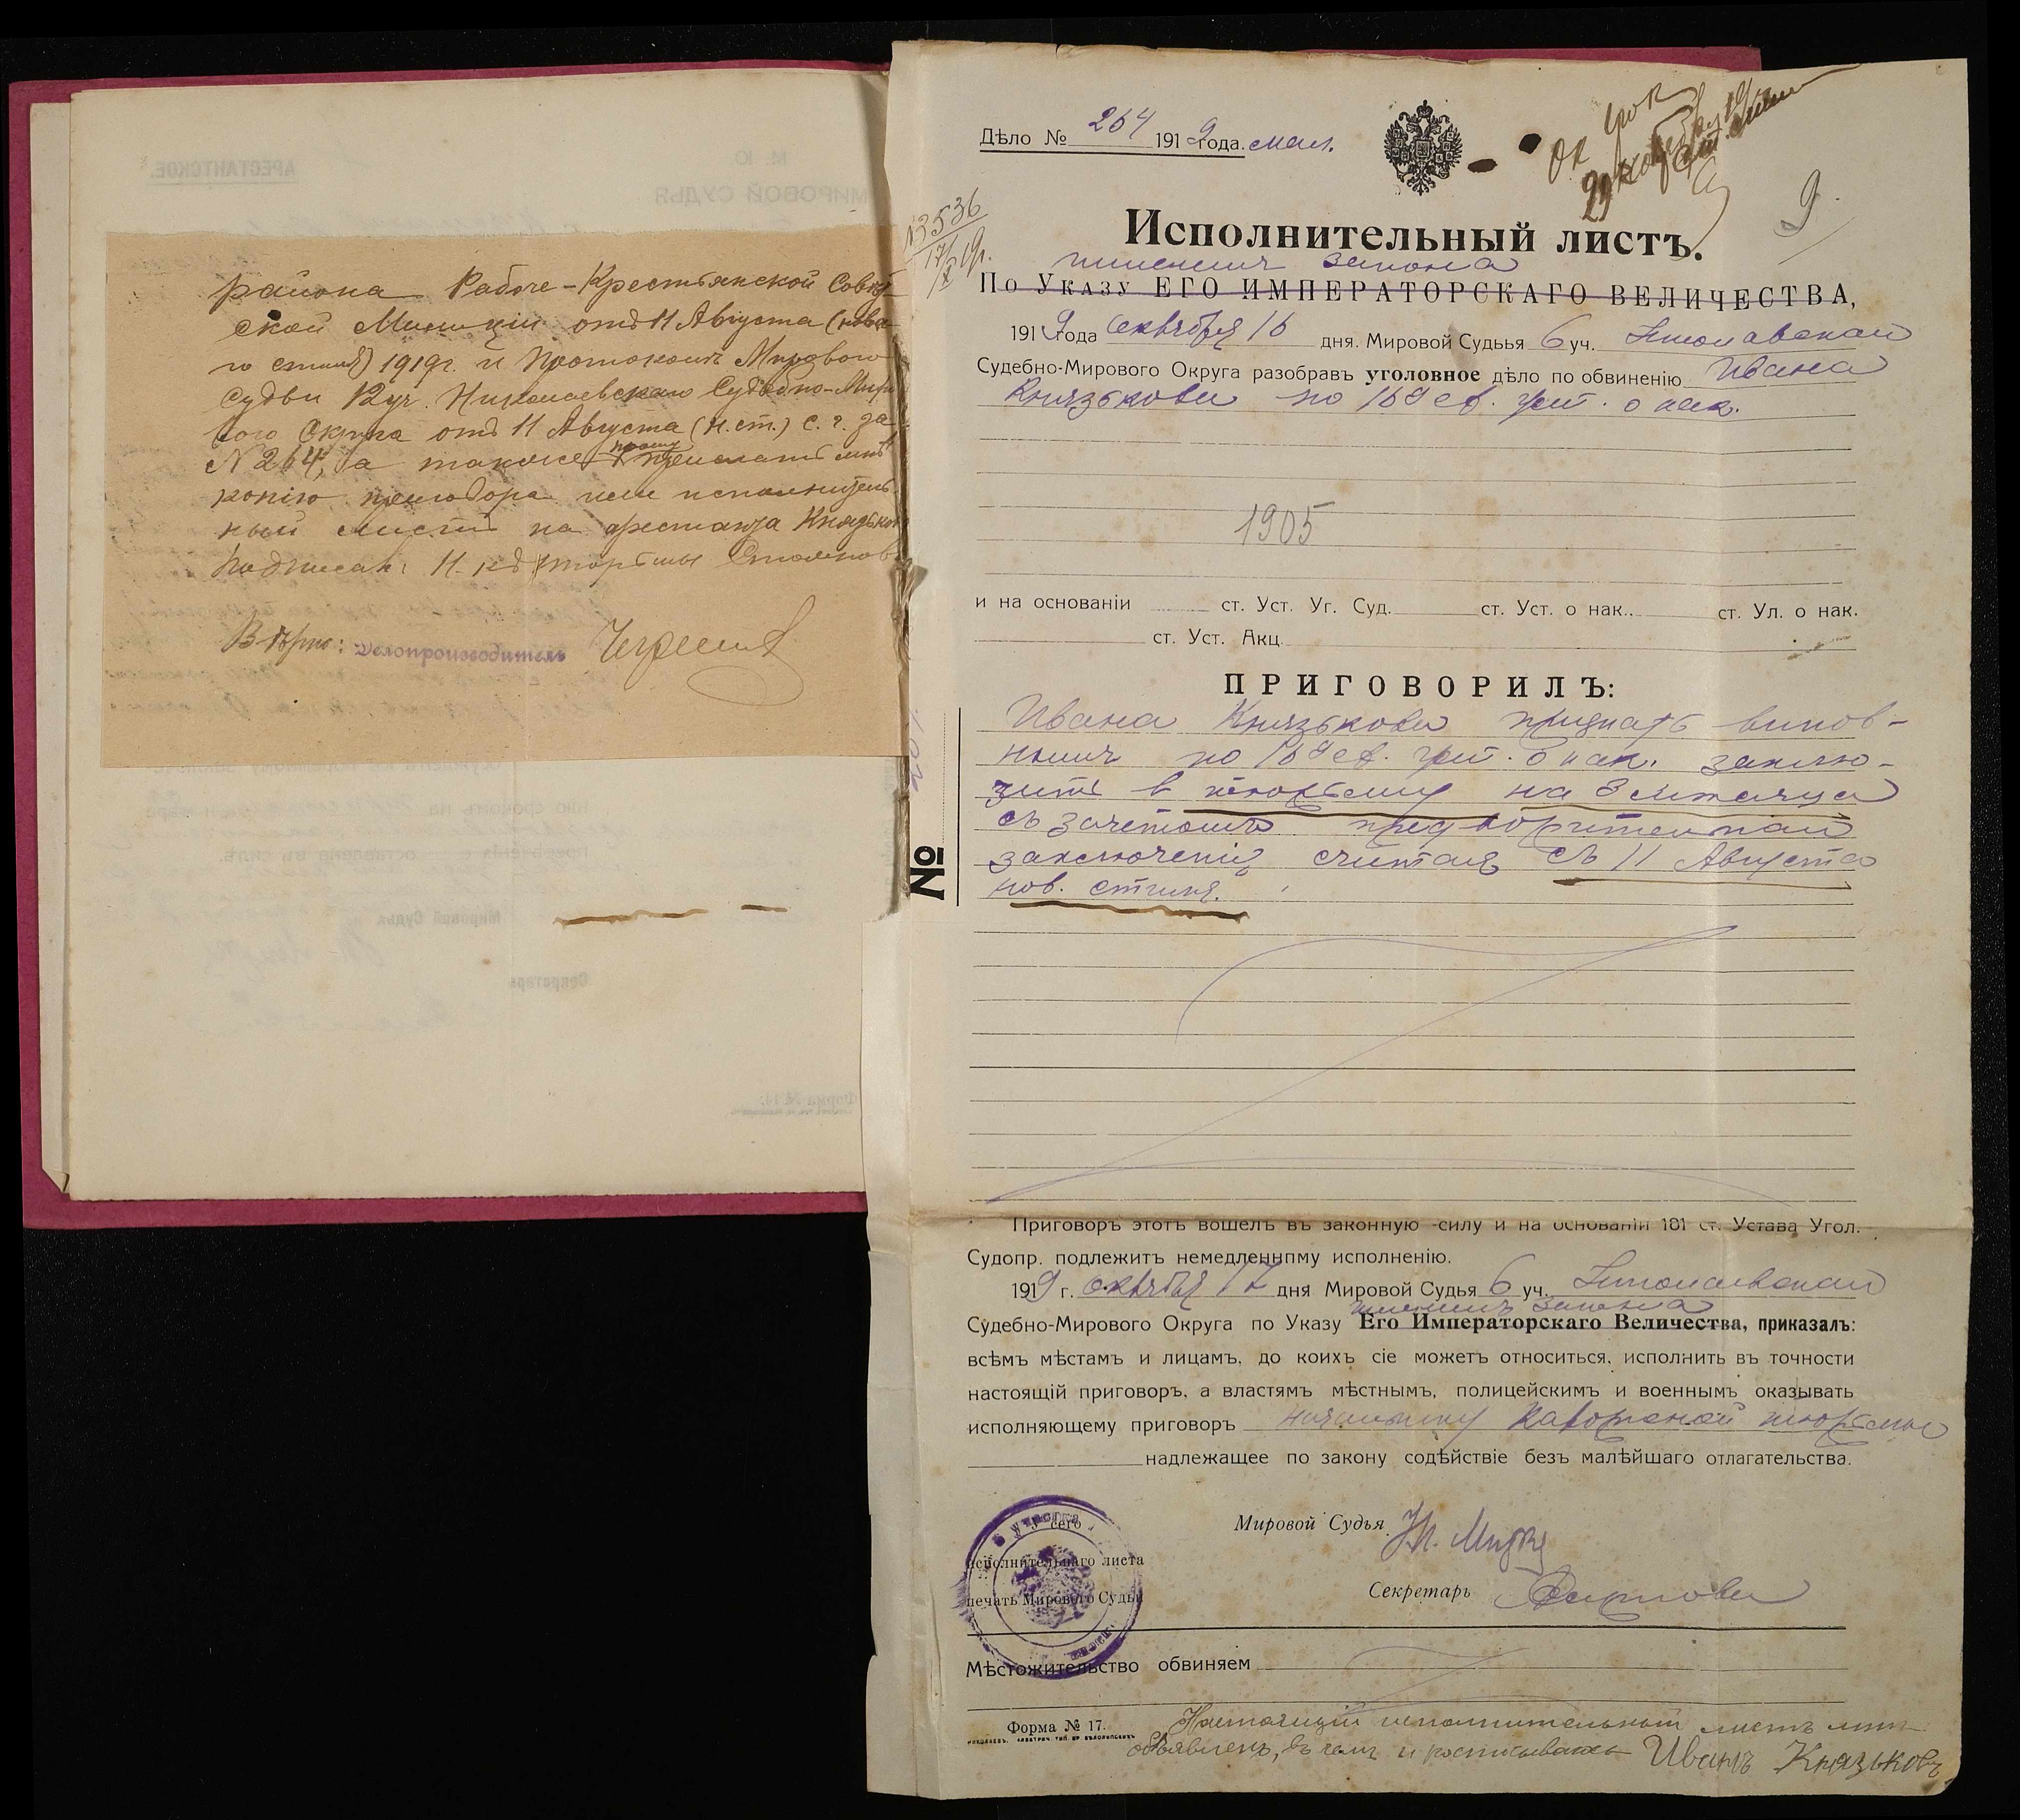 района Рабоче-Крестьянской Совѣт-
ской Милиціи отъ 11 Августа (нова-
го стиля) 1919г. и Протоколъ Мирового
Судьи 12 уч. Николаевскаго Судебно-Миро
вого Округа отъ 11 Августа (н. ст.) с. г. за
№ 264, а также прошу прислать мнѣ
копію приговора или исполнитель-
ный листъ на арестанта Князьков
Подписалъ: Н-къ тюрьмы
Вѣрно: Делопроизводитель
Дѣло № 264 1919 года.
29
9
№ 3536
17/X 19г.
Исполнительный листъ.
именемъ закона
По Указу ЕГО ИМПЕРАТОРСКАГО ВЕЛИЧЕСТВА,
1919 года октября 16 дня. Мировой Судьья 6 уч. Николаевскаго
Судебно-Мирового Округа разобравъ уголовное дѣло по обвиненію Ивана
Князькова по 169 ст. уст. о нак.
1905
и на основаніи ст. Уст. Уг. Суд. ст. Уст. о нак.. ст. Ул. о нак.
ст. Уст. Акц.
ПРИГОВОРИЛЪ:
Ивана Князькова признать винов-
нымъ по 169 ст. уст. о нак. заклю-
чить в тюрьму на 3 мѣсяца
съ зачетомъ предворительнаго
заключенія считая съ 11 Августа
нов. стиля.
№
Приговоръ этотъ вошелъ въ законную силу и на основаніи 181 ст. Устава Угол.
Судопр. подлежитъ немедленнпму исполненію.
1919 г. октября 17 дня Мировой Судья 6 уч. Николаевскаго
именемъ закона
Судебно-Мирового Округа по Указу Его Императорскаго Величества, приказалъ:
всѣмъ мѣстамъ и лицамъ, до коихъ сіе можетъ относиться, исполнить въ точности
настоящій приговоръ, а властямъ мѣстнымъ, полицейскимъ и военнымъ оказывать
исполняющему приговоръ начальнику Каторжной тюрьмы
надлежащее по закону содѣйствіе безъ малѣйшаго отлагательства.
У сего
исполнительнаго листа
печать Мирового Судьи
Мировой Судья
Секретарь
Мѣстожительство обвиняем
Форма № 17.
Настоящій исполнительный листъ мнѣ
объявленъ, въ чемъ и росписываюсь Иванъ Князьковъ